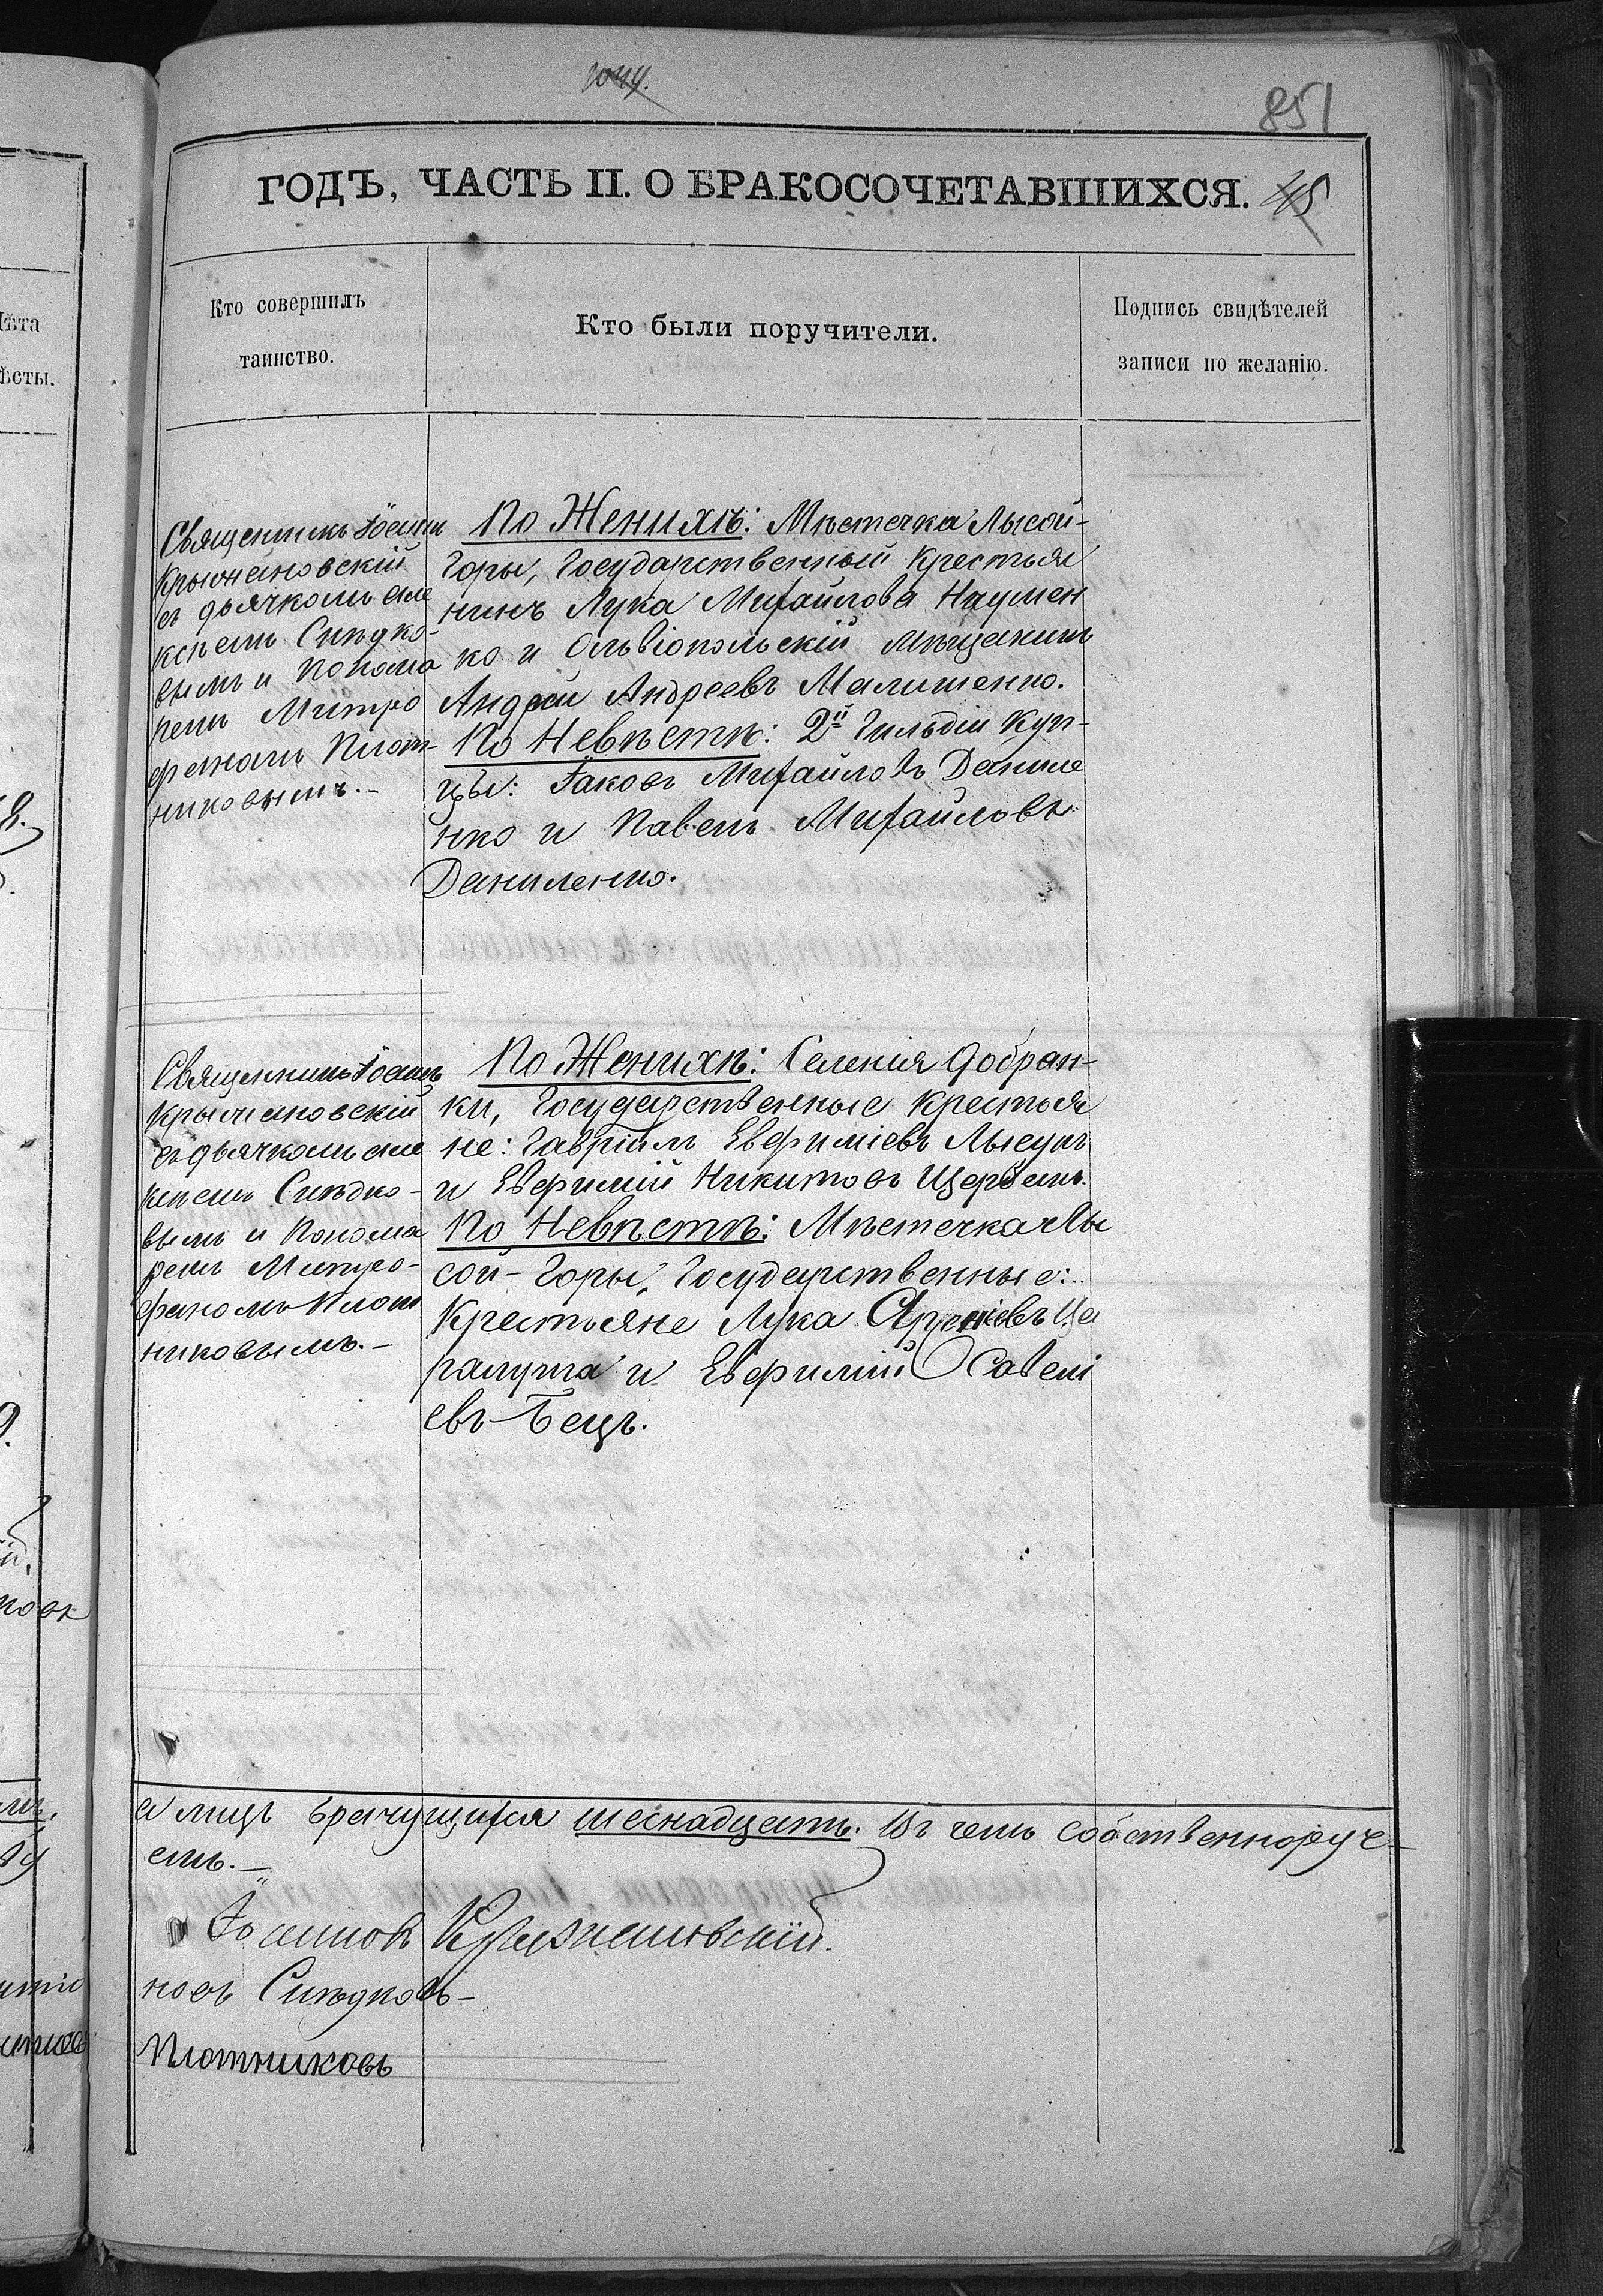 851
ГОДЪ, ЧАСТЬ II. О БРАКОСОЧЕТАВШИХСЯ. 45
Кто совершилъ
таинство.
Кто были поручители.
Подпись свидѣтелей
записи по желанію.
Священникъ Іоаннъ
Крыжановскій
съ дьячкомъ Але
ксѣемъ Снѣдко-
вымъ и Понома
ремъ Митро
фаномъ Плот-
никовымъ.-
По Женихѣ: Мѣстечка Лысой-
Горы, Государственный Крестья
нинъ Лука Михайловъ Наумен
ко и Ольвіопольскій Мѣщанинъ
Андрей Андреевъ Малишенко.
По Невѣстѣ: 2й Гильдіи Куп-
цы: Іаковъ Михайловъ Даниле
нко и Павелъ Михайловъ
Даниленко.
Священникъ Іоаннъ
Крыжановскій
съ дьячкомъ Але
ксѣемъ Снѣдко-
вымъ и Понома
ремъ Митро-
фаномъ Плот
никовымъ.-
По Женихѣ: Селенія Добрян-
ки, Государственные Крестья
не: Гавріилъ Евфиміевъ Лысунъ
и Евфимій Никитовъ Щербань.
По Невѣстѣ: Мѣстечка Лы
сой-Горы, Государственные:
Крестьяне Лука Ца
рапута и Евфимій Савелі
евъ Бецъ.
а лицъ брачущихся шеснадцать. Въ чемъ собственноруч-
емъ.-
Іоаннъ Крыжановскій.
новъ Снѣдковъ-
Плотниковъ